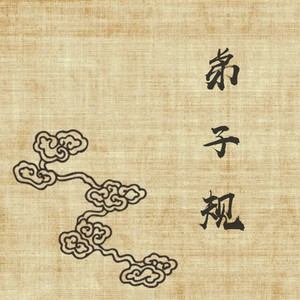 弟子规